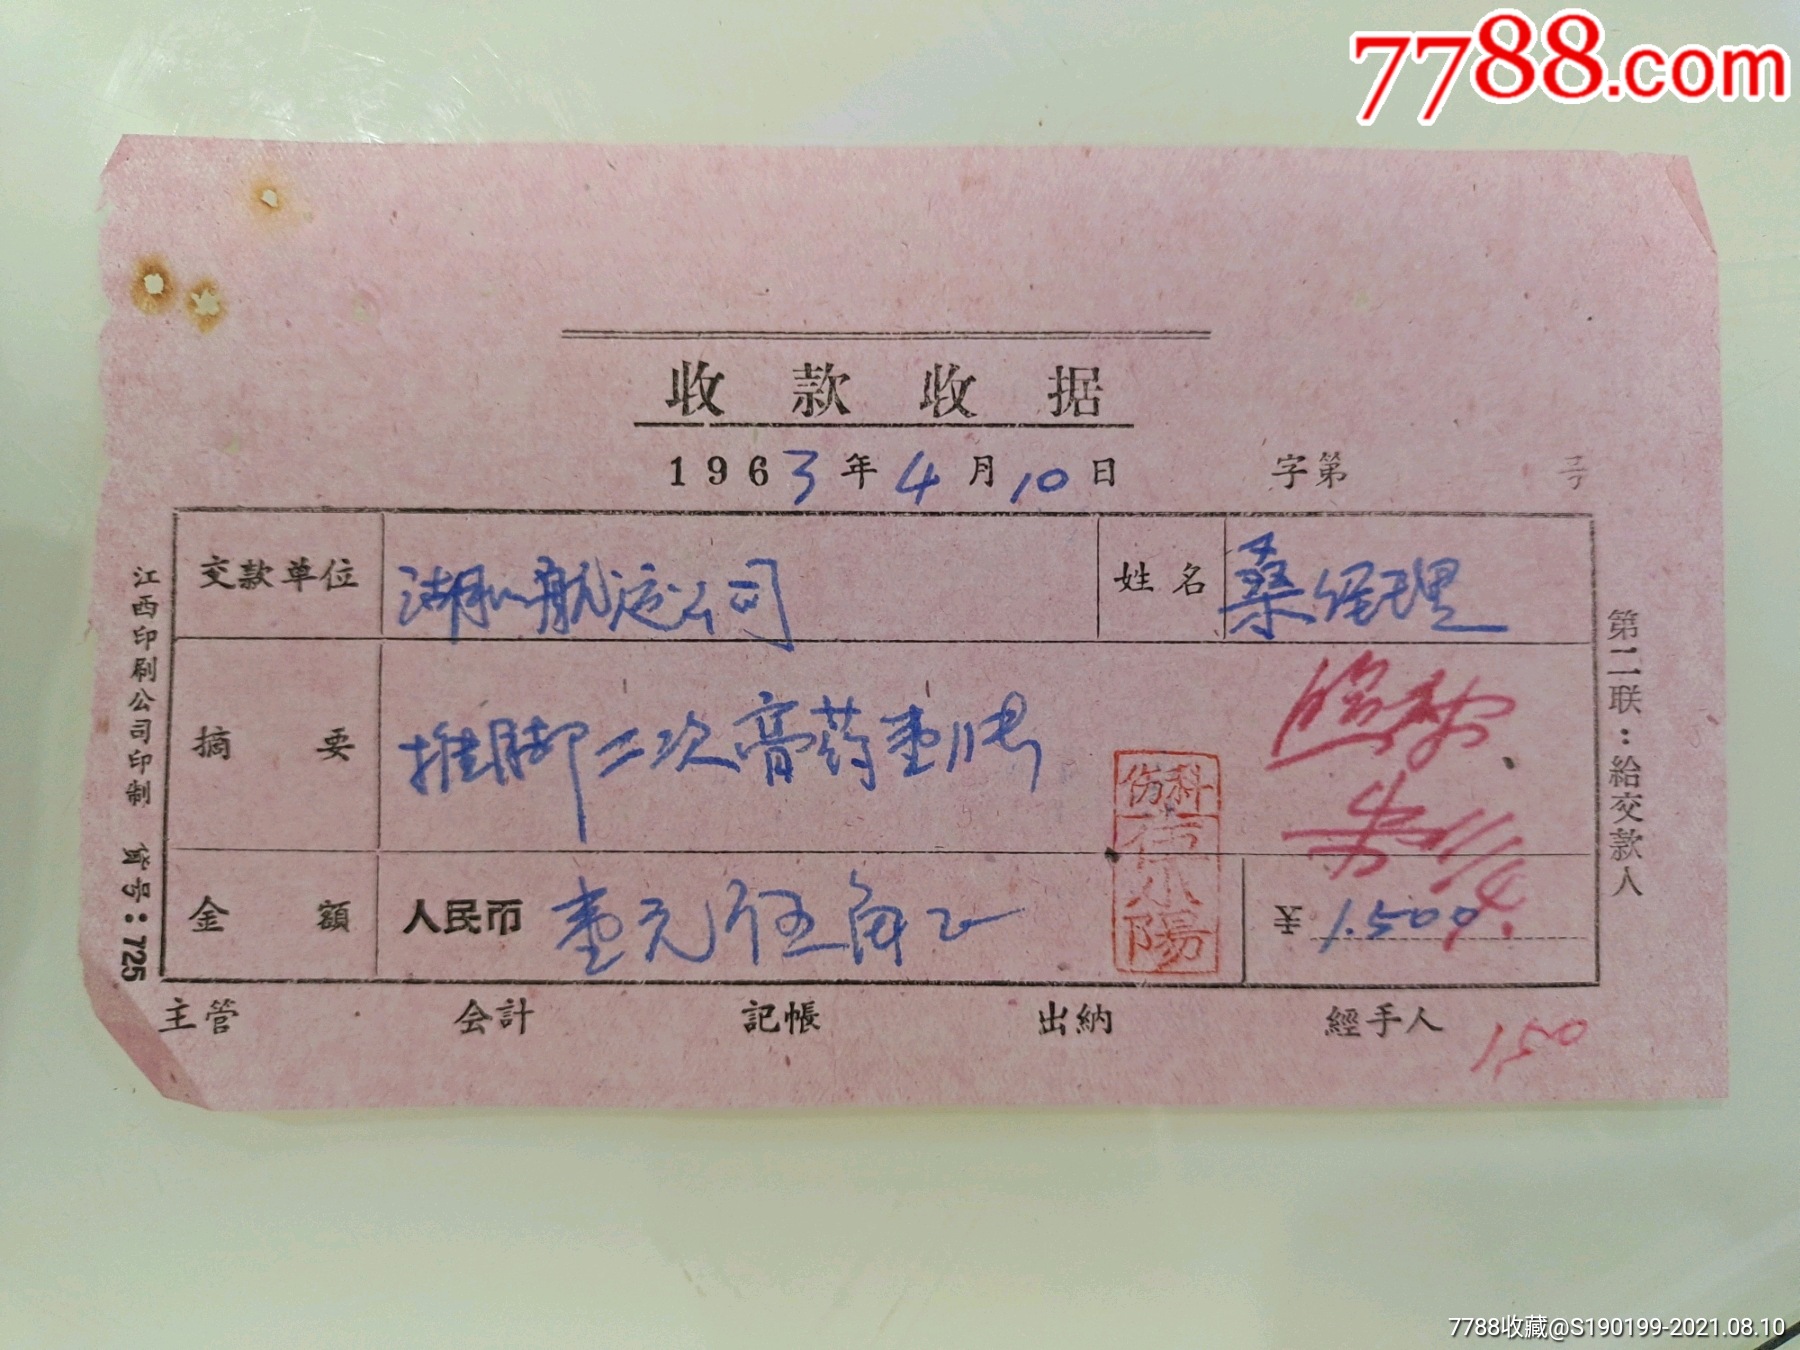 7788.com
收款收据
1963年4月10日 字第 号
交款单位 湖口航运公司 姓名 桑经理
摘要 推脚二次膏药壹张
伤科
金额 人民币 壹元伍角正 1.500
主管 会計 記帳 出納 經手人
1.50
江西印刷公司印制 貨号:725
第二联:給交款人
7788收藏@S190199-2021.08.10